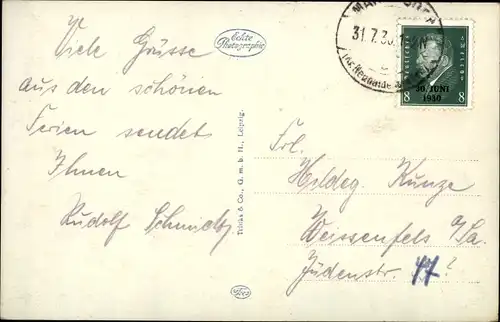 Viele Grüsse
aus den schönen
Ferien sendet
Ihnen
Rudolf
Echte
Photographie
Trinks & Co., G. m. b. H., Leipzig.
31.7.30
30. JUNI
1930
8 8
Frl.
Hildeg. Kunze
Weissenfels a/Sa.
Judenstr. 47?